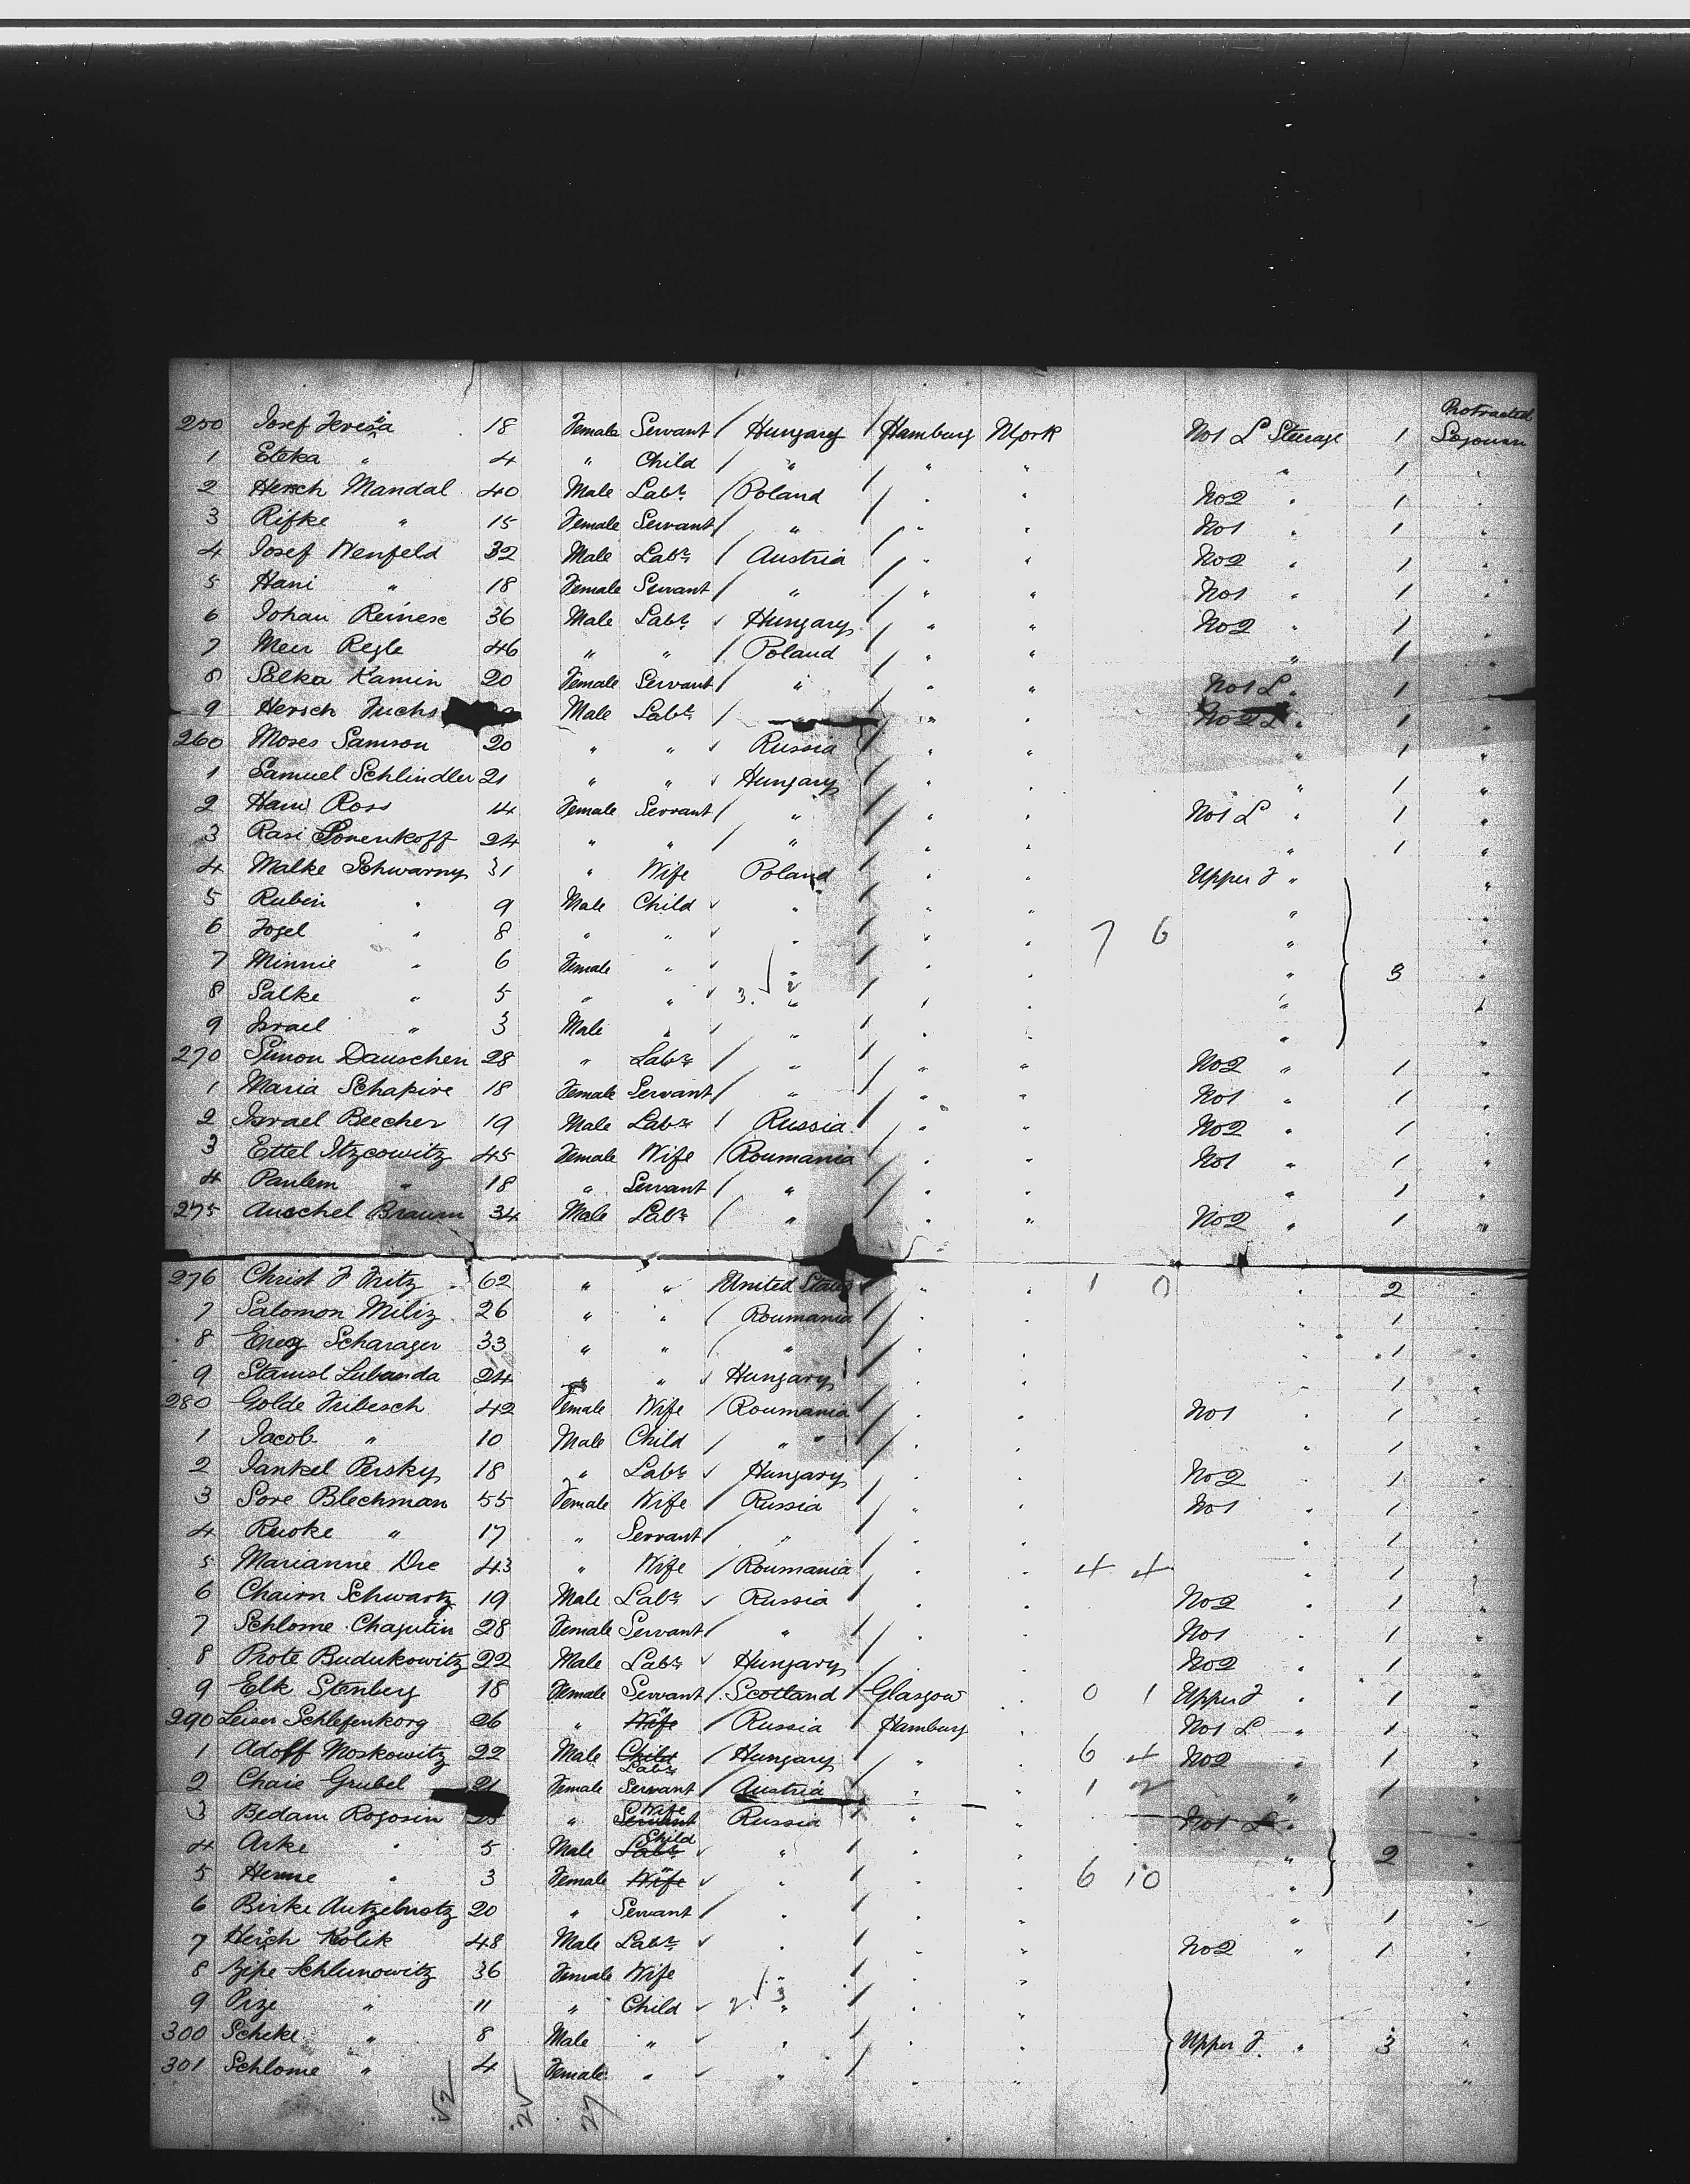 Protracted
250 Josef Teresia 18 Female Servant / Hungary / Hamburg NYork No1 L Steerage 1 Sojourn
1 Eteka " 4 " Child / " " " " 1 "
2 Hersch Mandal 40 Male Labr / Poland / " " No2 " 1 "
3 Rifke " 15 Female Servant / " / " " No1 " 1 "
4 Josef Wenfeld 32 Male Labr / Austria / " " No2 " 1 "
5 Hani " 18 Female Servant / " / " " No1 " 1 "
6 Johan Reinese 36 Male Labr ✓ Hungary / " " No2 " 1 "
7 Meir Regle 46 " " / Poland / " " " 1 "
8 Salka Kamin 20 Female Servant / " / " " No1 L " 1 "
9 Hersch Fuchs Male Labr / " / " " No2 L " 1 "
260 Moses Samson 20 " " ✓ Russia / " " " 1 "
1 Samuel Schlindler 21 " " ✓ Hungary / " " " 1 "
2 Hani Ross 14 Female Servant / " / " " No1 L " 1 "
3 Rasi 24 " " / " / " " " 1 "
4 Malke Schwarny 31 " Wife Poland / " " Upper F " "
5 Rubin " 9 Male Child ✓ " / " " " "
6 Fogel " 8 " " ✓ " / " " 7 6 " "
7 Minnie " 6 Female " ✓ " / " " " 3 "
8 Salke " 5 " " ✓ 3. ✓ 2 " / " " " "
9 Israel " 3 Male " ✓ " / " " " "
270 Simon Dauschen 28 " Labr / " / " " No2 " 1 "
1 Maria Schapire 18 Female Servant / " / " " No1 " 1 "
2 Israel Beecher 19 Male Labr / Russia / " " No2 " 1 "
3 Ettel Itzcowitz 45 Female Wife / Roumania / " " No1 " 1 "
4 Paulem " 18 " Servant / " / " " " 1 "
275 Auschel Braum 34 Male Labr / " / " " No2 " 1 "
276 Christ F Fritz 62 " " / United States / " " 1 0 " 2 "
7 Salomon Miliz 26 " " / Roumania / " " " 1 "
8 Scharager 33 " " / " / " " " 1 "
9 Stanisl Lubanda 24 " " ✓ Hungary / " " " 1 "
280 Golde Fribesch 42 Female Wife / Roumania / " " No1 " 1 "
1 Jacob " 10 Male Child / " / " " " 1 "
2 Jankel Persky 18 " Labr ✓ Hungary / " " No2 " 1 "
3 Sore Blechman 55 Female Wife / Russia / " " No1 " 1 "
4 Ruoke " 17 " Servant / " / " " " 1 "
5 Marianne Dre 43 " Wife / Roumania / " " 4 4 " 1 "
6 Chaim Schwartz 19 Male Labr ✓ Russia / " " No2 " 1 "
7 Schlome Chajutin 28 Female Servant / " / " " No1 " 1 "
8 Prote Budukowitz 22 Male Labr ✓ Hungary / " " No2 " 1 "
9 Elk Stenberg 18 Female Servant / Scotland / Glasgow " 0 1 Upper F " 1 "
290 Leiser Schlefenkorg 26 " Wife / Russia / Hamburg " No1 L " 1 "
1 Adolf Moskowitz 22 Male Child Labr / Hungary / " " 6 4 No2 " 1 "
2 Chaie Grubel 21 Female Servant / Austria / " " 1 2 " 1 "
3 Bedam Rogosin " Wife Servant Russia / " " No1 L "
4 Arke " 5 Male Child Labr ✓ " / " " " 2 "
5 Henne " 3 Female " Wife ✓ " / " " 6 10 " "
6 Birke 20 " Servant / " / " " " 1 "
7 Hersch Kolik 48 Male Labr ✓ " / " " No2 " 1 "
8 Zipe Schlunowitz 36 Female Wife " / " " "
9 Prize " 11 " Child ✓ 2. ✓ 3 " / " " "
300 Scheke " 8 Male " ✓ " / " " Upper F. " 3 "
301 Schlome " 4 Female " ✓ " / " " "
52 25 27